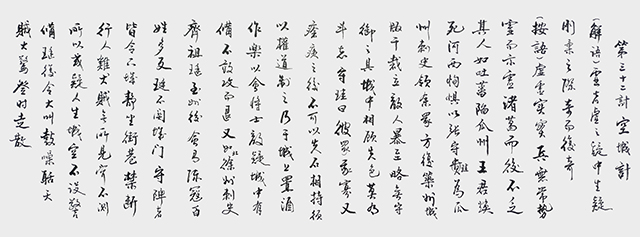 第三十二計 空城計
(解語)虛者虛之疑中生疑
剛柔之際奇而復奇
(按語)虛虛實實真實常勢
虛而示虛諸葛而後不乏
其人如吐蕃陷瓜州王君煥
死河西恟懼以張守珪為瓜
州刺史領余眾方復築州城
版干裁立敵人暴至略無守
御之具城中相顧失色莫有
斗志守珪曰彼眾我寡又
瘡痍之後不可以矢石相持須
以權道制之乃于城上置酒
作樂以會將士敵疑城中有
備不敢攻而退又如徐州刺史
齊祖珽至州後會有陳寇百
姓多反珽不關城門守陴者
皆令下城靜坐街巷禁斷
行人雞犬賊無所見聞不測
所以或疑人走城空不設警
備珽復令大叫鼓噪聒天
賊大驚登時走散